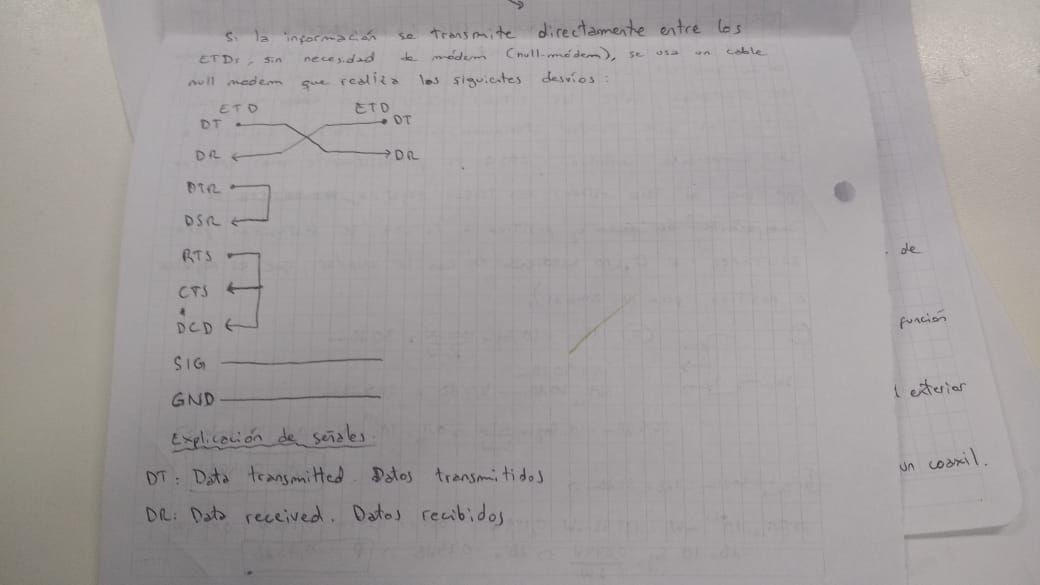 Si la información se transmite directamente entre los
ETDs, sin necesidad de módem (null-módem), se usa un cable
null modem que realiza los siguientes desvíos:
ETD ETD
DT DT
DR DR
DTR
DSR
RTS
CTS
DCD
SIG
GND
Explicación de señales.
DT: Data transmitted. Datos transmitidos
DR: Data received. Datos recibidos
de
función
exterior
un coaxil.